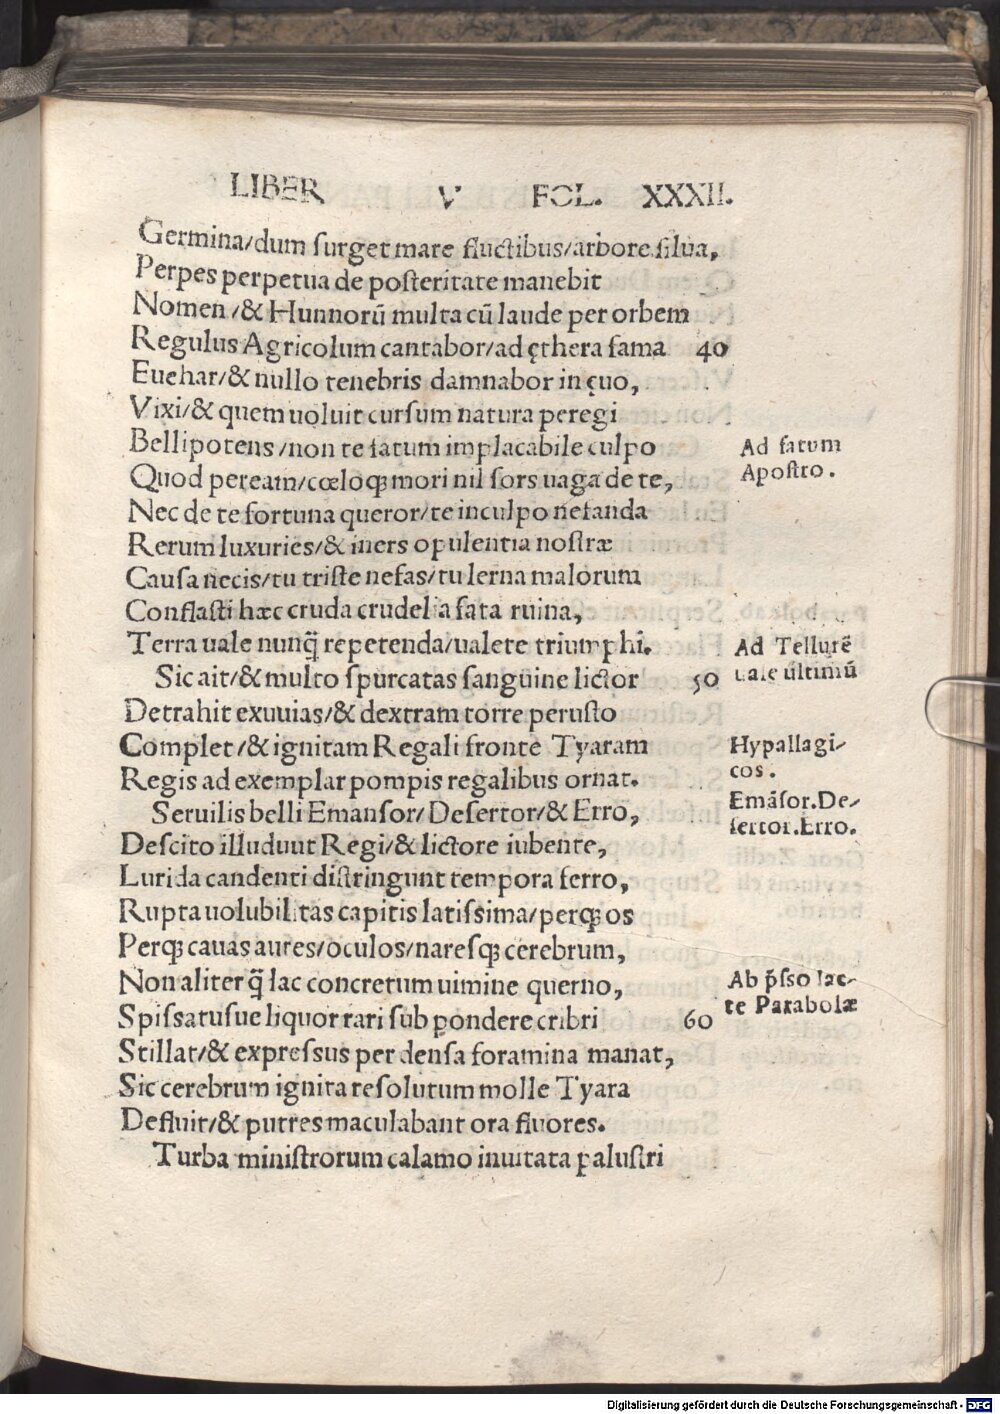 LIBER V FOL. XXXII.
Germina/dum surget mare fluctibus/arbore silua,
Perpes perpetua de posteritate manebit
Nomen/& Hunnorũ multa cũ laude per orbem
Regulus Agricolum cantabor/ad ęthera fama 40
Euehar/& nullo tenebris damnabor in ęuo,
Vixi/& quem uoluit cursum natura peregi
Bellipotens/non te fatum implacabile culpo
Ad fatum
Quod peream/cœloqꝫ mori nil sors uaga de te,
Apostro.
Nec de te fortuna queror/te inculpo nefanda
Rerum luxuries/& iners opulentia nostræ
Causa necis/tu triste nefas/tu lerna malorum
Conflasti hæc cruda crudelia fata ruina,
Terra uale nunq̃ repetenda/ualete triumphi.
Ad Tellurẽ
Sic ait/& multo spurcatas sanguine lictor 50
uale ultimũ
Detrahit exuuias/& dextram torre perusto
Complet/& ignitam Regali fronte Tyaram
Hypallagi-
Regis ad exemplar pompis regalibus ornat.
cos.
Seruilis belli Emansor/Desertor/& Erro,
Emãsor.De-
sertor.Erro.
Descito illudunt Regi/& lictore iubente,
Lurida candenti distringunt tempora ferro,
Rupta uolubilitas capitis latissima/perqꝫ os
Perqꝫ cauas aures/oculos/naresqꝫ cerebrum,
Non aliter q̃ lac concretum uimine querno,
Ab p̃sso lac-
Spissatusue liquor rari sub pondere cribri 60
te Parabolæ
Stillat/& expressus per densa foramina manat,
Sic cerebrum ignita resolutum molle Tyara
Defluit/& putres maculabant ora fluores.
Turba ministrorum calamo inuitata palustri
Digitalisierung gefördert durch die Deutsche Forschungsgemeinschaft - DFG